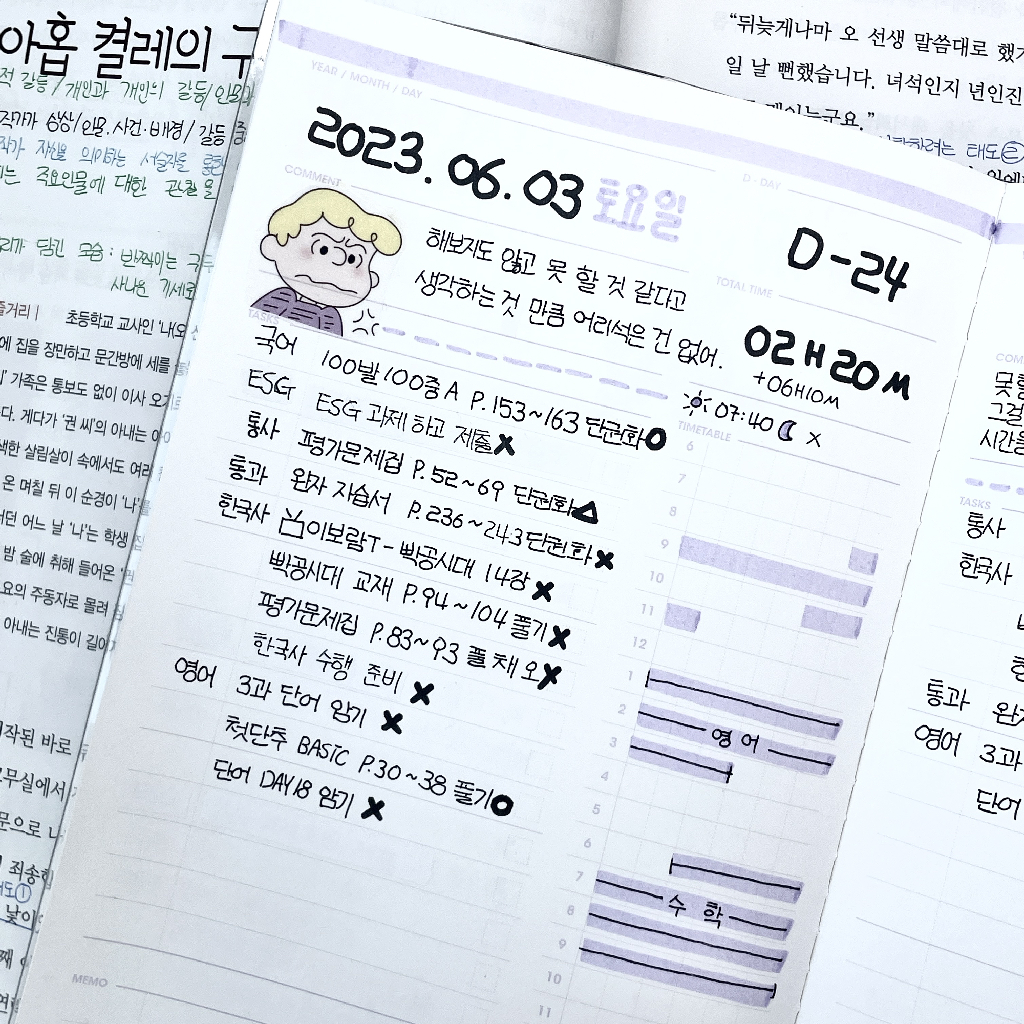 아홉 켤레의 구
적 갈등/개인과 개인의 갈등/인물과
작가 상상/인물.사건.배경/갈등 중
작가 자신을 의미하는 서술자를 통한
주요인물에 대한 관찰을
담긴 모습: 반짝이는 구두
사나운 기세로
줄거리 | 초등학교 교사인 '나(오 선
에 집을 장만하고 문간방에 세를
' 가족은 통보도 없이 이사 오기
다. 게다가 '권 씨'의 아내는 아
색한 살림살이 속에서도 여러
온 며칠 뒤 이 순경이 '나'를
던 어느 날 '나'는 학생
밤 술에 취해 들어온 '권
요의 주동자로 몰려
아내는 진통이 길어
작된 바로
무실에서
문으로 나
죄송한
도①
낯이
"뒤늦게나마 오 선생 말씀대로 했기
일 날 뻔했습니다. 녀석인지 년인진
게이누군요."
하려는 태도②
YEAR / MONTH / DAY
2023. 06. 03 토요일
D - DAY
D-24
COMMENT
해보지도 않고 못 할 것 같다고
생각하는 것 만큼 어리석은 건 없어.
TOTAL TIME
02H 20M
+06H10M
07:40 X
TASKS
국어 100발 100중 A P.153~163 단권화 O
ESG ESG 과제 하고 제출 X
통사 평가문제집 P.52~69 단권화 △
통과 완자 자습서 P.236~243 단권화 X
한국사 이보람T - 빡공시대 14강 X
빡공시대 교재 P.94~104 풀기 X
평가문제집 P.83~93 풀 채 오 X
한국사 수행 준비 X
영어 3과 단어 암기 X
첫단추 BASIC P.30~38 풀기 O
단어 DAY18 암기 X
TIMETABLE
6
7
8
9
10
11
12
1
2
영어
3
4
5
6
7
수학
8
9
10
11
MEMO
COM
못할
그걸
시간을
TASKS
통사
한국사
통과 완자
영어 3과
단어